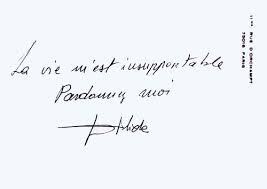 La vie m'est insupportable
Pardonnez moi
Dalida
11 BIS RUE D'ORCHAMPT
75018 PARIS